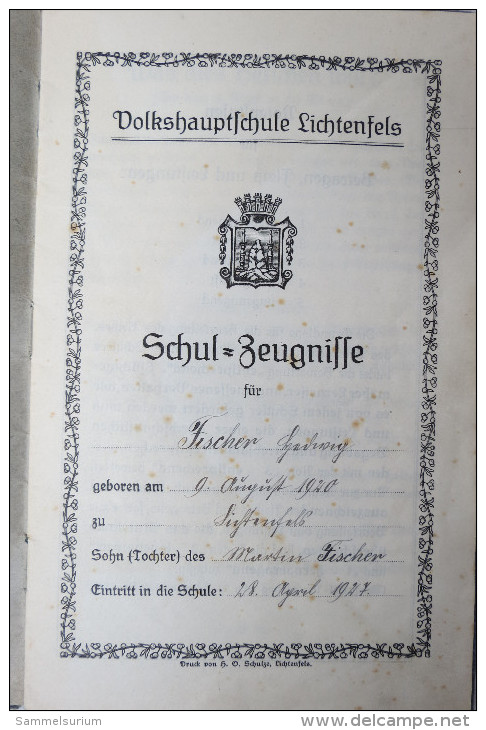 Volkshauptschule Lichtenfels
Schul=Zeugnisse
für
Fischer Hedwig
geboren am 9. August 1920
zu Lichtenfels
Sohn (Tochter) des Martin Fischer
Eintritt in die Schule: 28. April 1927.
Druck von H. O. Schulze, Lichtenfels.
Sammelsurium
delcampe.net